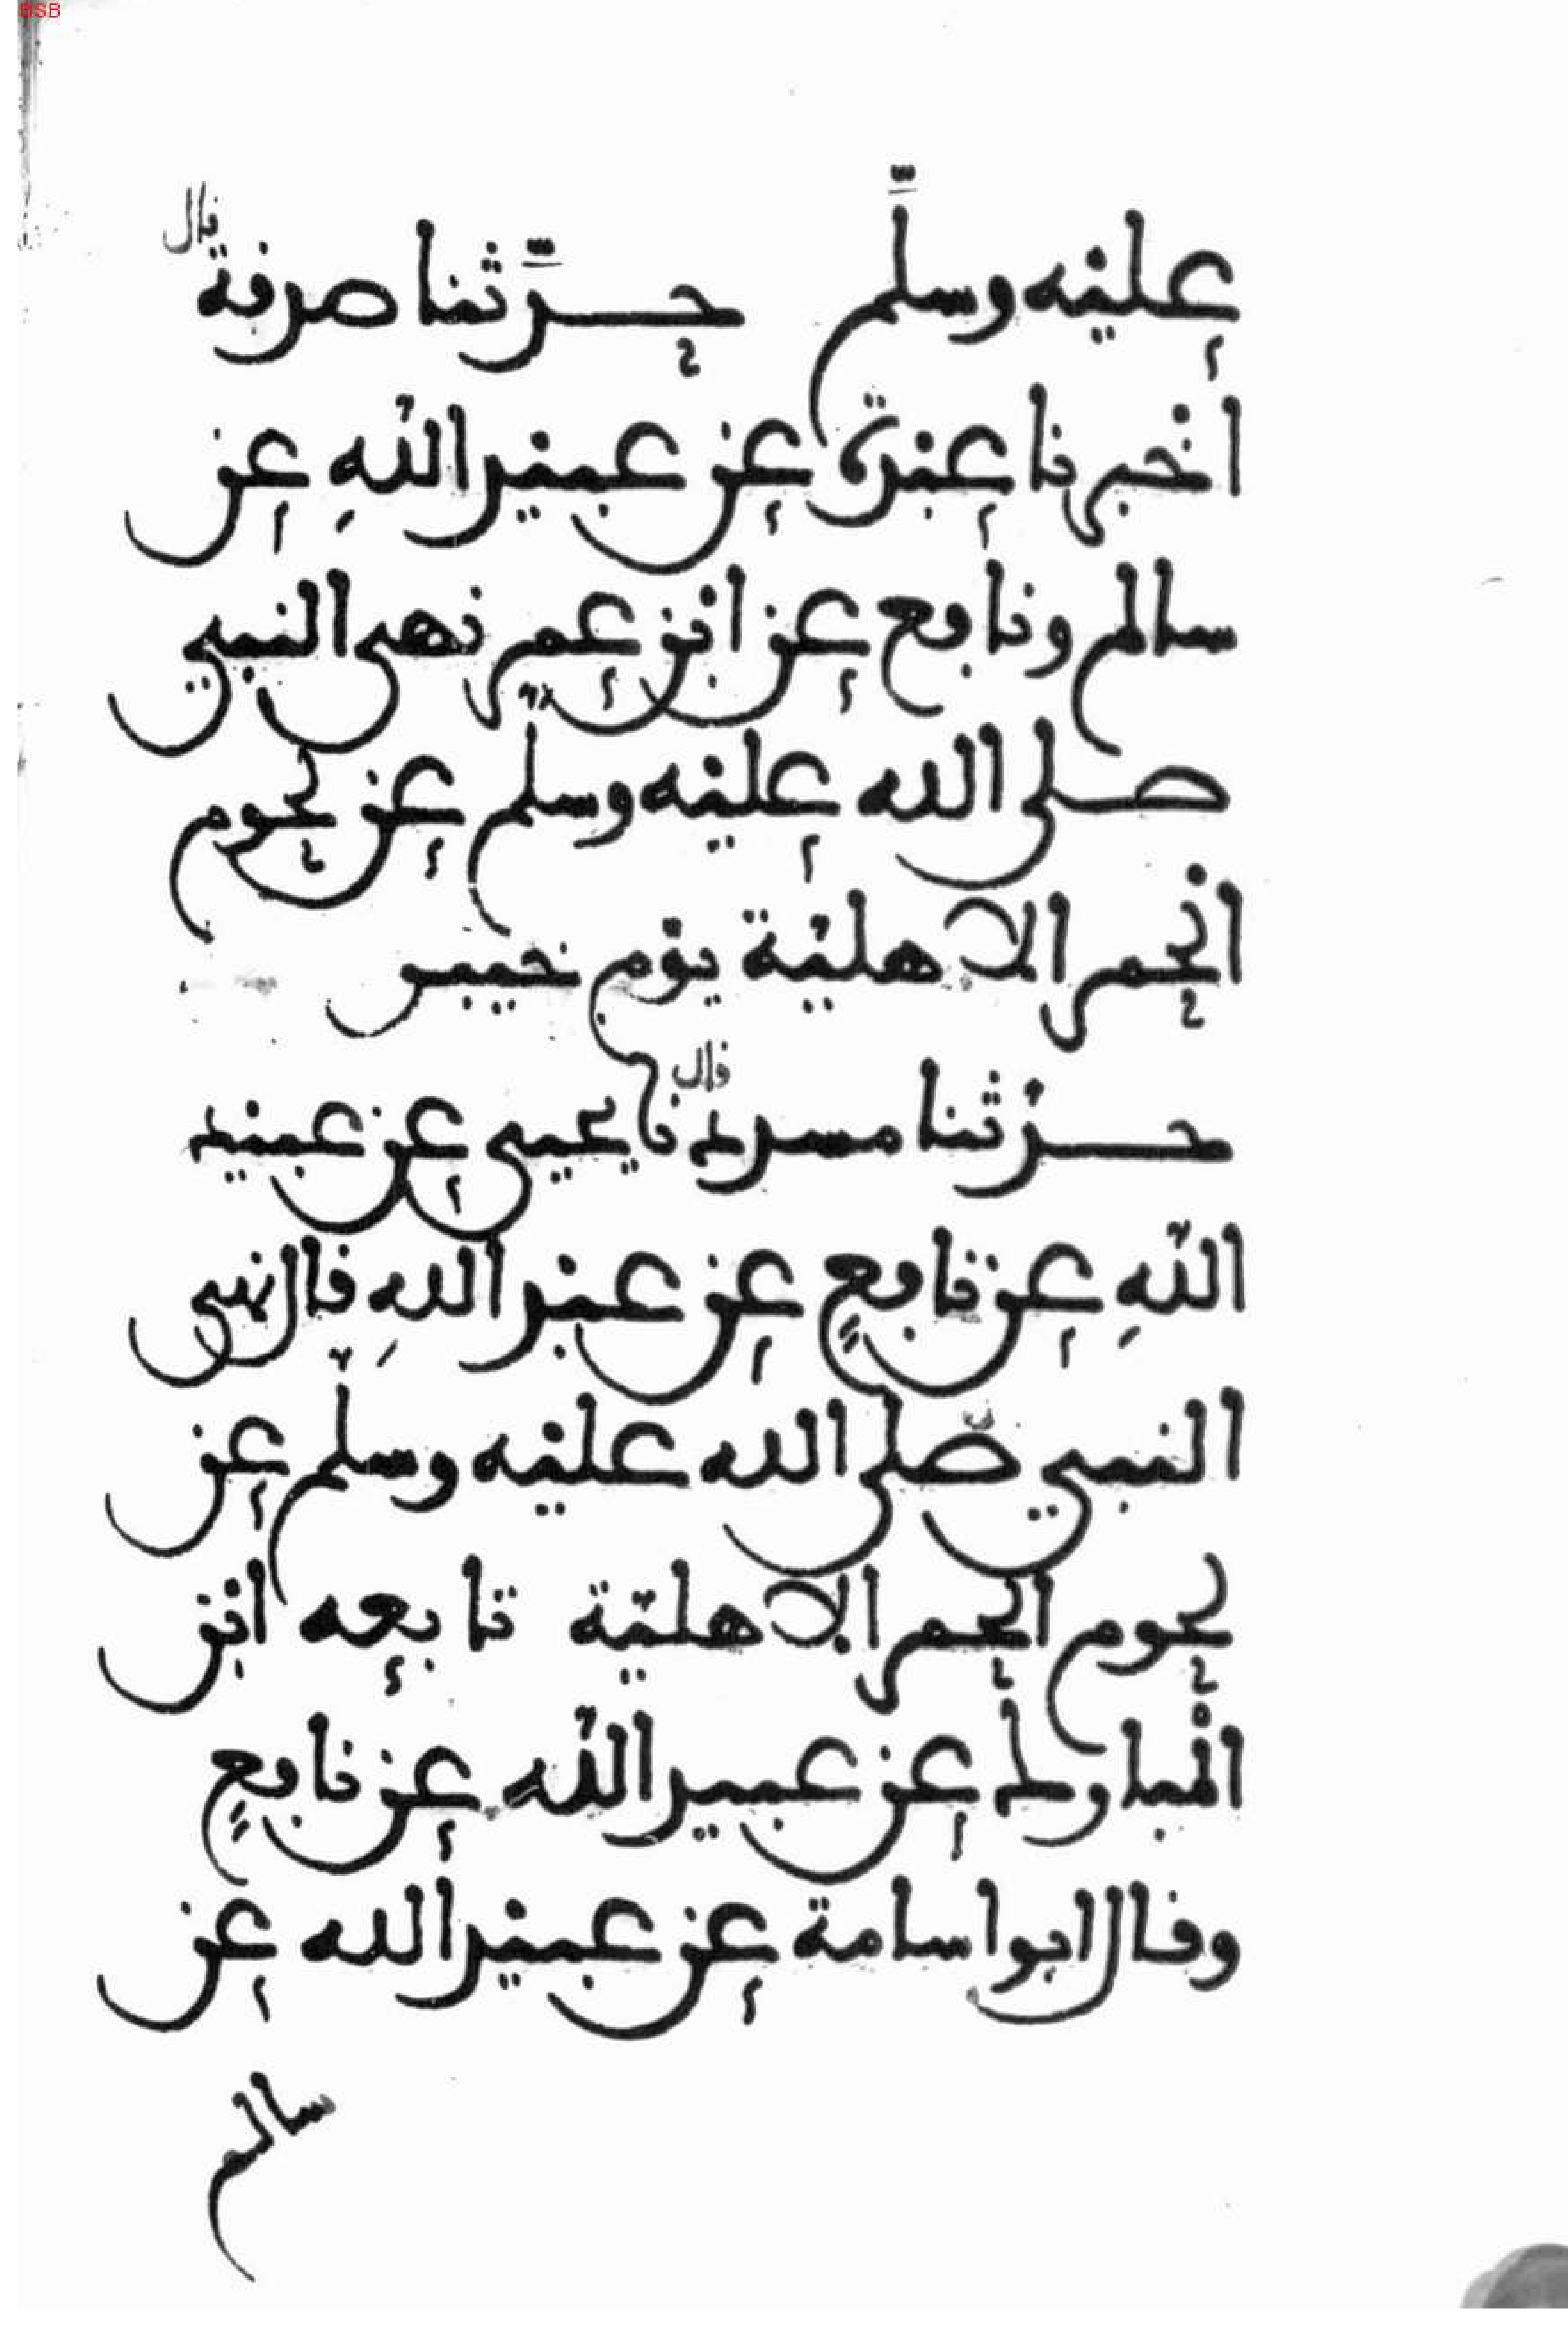 BSB
عليه وسلم حدثنا صدقة قال
اخبرنا عبدة عن عبيد الله عن
سالم ونافع عن ابن عمر نهى النبي
صلى الله عليه وسلم عن لحوم
الحمر الاهلية يوم خيبر
حدثنا مسدد قال نا يحيى عن عبيد
الله عن نافع عن عبد الله قال نهى
النبي صلى الله عليه وسلم عن
لحوم الحمر الاهلية تابعه ابن
المبارك عن عبيد الله عن نافع
وقال ابو اسامة عن عبيد الله عن
سالم